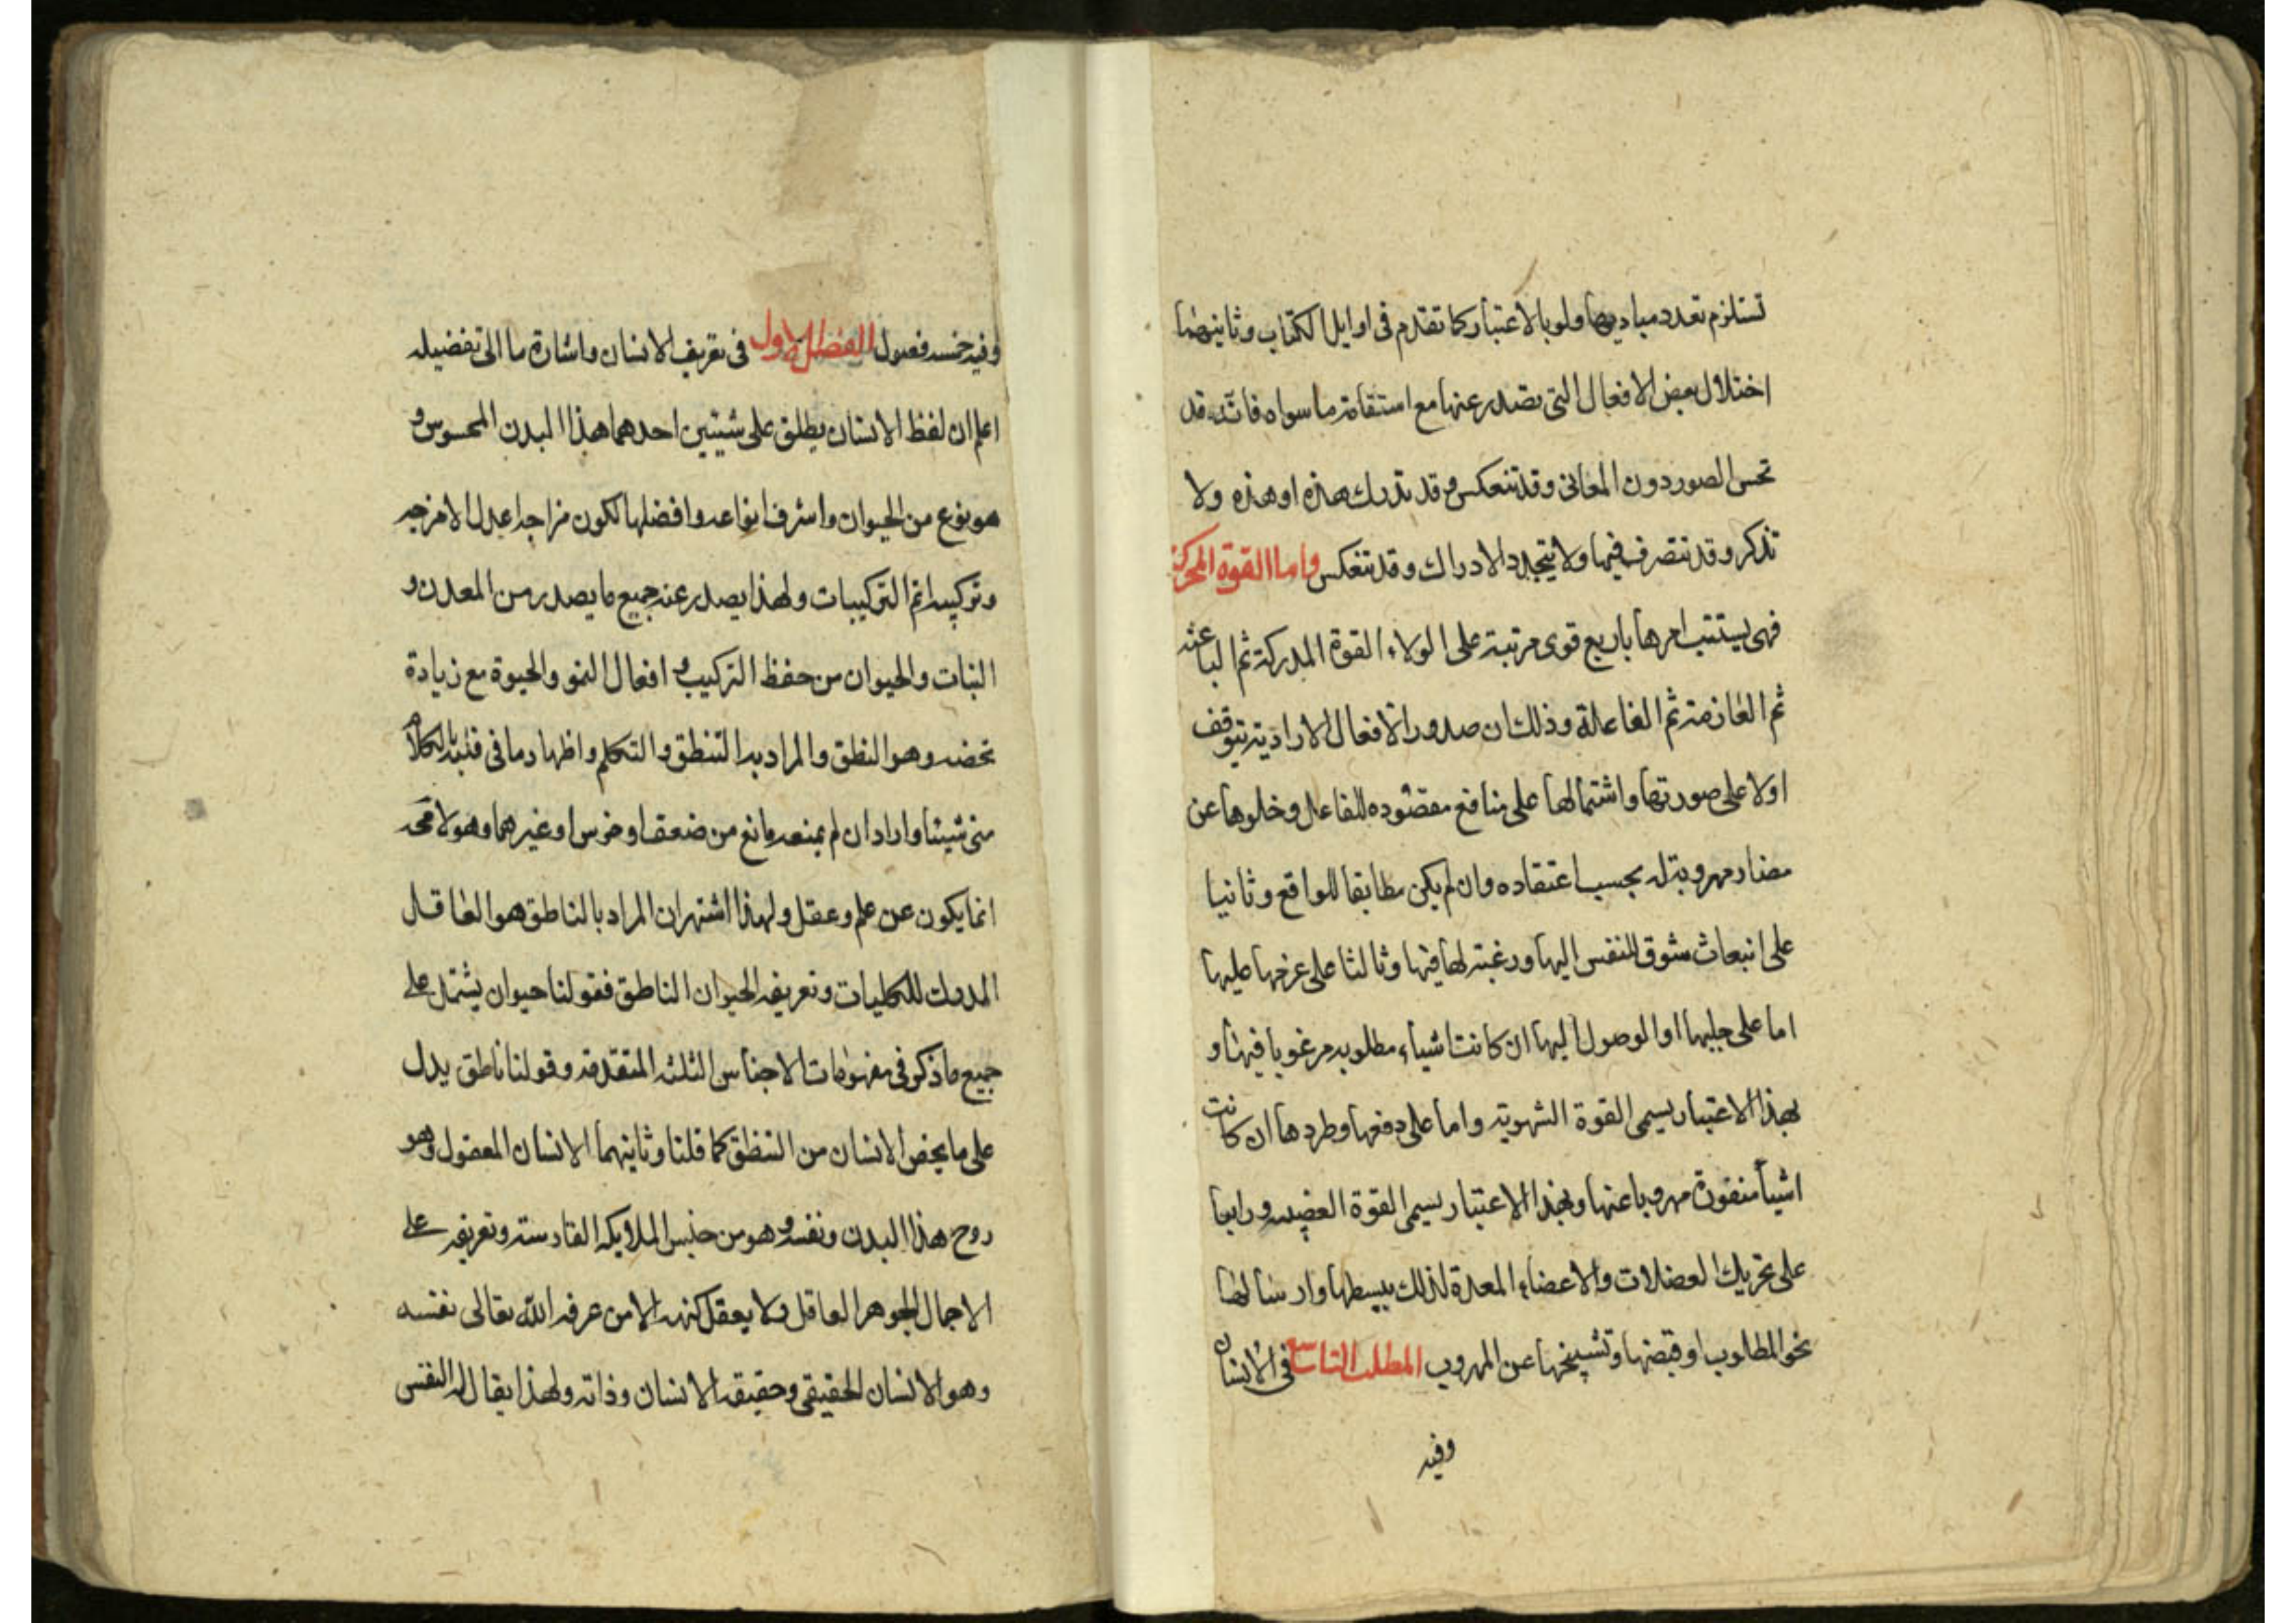 تستلزم تعدد مباديها ولو بالاعتبار كما تقدم فى اوايل الكتاب وثانيهما
اختلال بعض الافعال التى تصدر عنها مع استقامة ما سواه فانه قد
تحس الصور دون المعانى وقد تنعكس وقد تدرك هذه او هذه ولا
تذكر وقد تتصرف فيها ولا يتجدد الادراك وقد تنعكس واما القوة المحركة
فهى يستتب امرها باربع قوى مرتبة على الولاء القوة المدركة ثم الباعثه
ثم العازمة ثم الفاعلة وذلك ان صدور الافعال الارادية يتوقف
اولا على صورتها واشتمالها على منافع مقصوده للفاعل وخلوها عن
مضار مهروبة له بحسب اعتقاده وان لم يكن مطابقا للواقع وثانيا
على انبعاث شوق للنفس اليها ورغبة لها فيها وثالثا على عزمها عليها
اما على جلبها او الوصول اليها ان كانت اشياء مطلوبه مرغوبا فيها و
بهذا الاعتبار يسمى القوة الشهوية واما على دفعها وطردها ان كانت
اشيأ منفورة مهروبا عنها وبهذا الاعتبار يسمى القوة الغضبيه ورابعا
على تحريك العضلات والاعضاء المعدة لذلك ببسطها وارسالها
نحو المطلوب او قبضها وتشنيجها عن المهروب المطلب التاسع فى الانسان
وفيه
وفيه خمسه فصول الفصل الاول فى تعريف الانسان واشارة ما الى تفضيله
اعلم ان لفظ الانسان يطلق على شيئين احدهما هذا البدن المحسوس و
هو نوع من الحيوان واشرف انواعه وافضلها لكون مزاجه اعدل الامزجه
وتركيبه اتم التركيبات ولهذا يصدر عنه جميع ما يصدر من المعدن و
النبات والحيوان من حفظ التركيب و افعال النمو والحيوة مع زيادة
تخصه وهو النطق والمراد به التنطق والتكلم واظهار ما فى قلبه بالكلام
متى شيئا واراد ان لم يمنعه مانع من ضعف او خرس او غيرهما وهو لا محه
انما يكون عن علم وعقل ولهذا اشتهر ان المراد بالناطق هو العاقل
المدرك للكليات وتعريفه الحيوان الناطق فقولنا حيوان يشتمل على
جميع ما ذكر فى مفهومات الاجناس الثلثه المتقدمة وقولنا ناطق يدل
على ما يخص الانسان من التنطق كما قلنا وثانيهما الانسان المعقول وهو
روح هذا البدن ونفسه و هو من جنس الملايكه القادسة وتعريفه على
الاجمال الجوهر العاقل ولا يعقل كنهه الا من عرفه الله تعالى نفسه
وهو الانسان الحقيقى وحقيقه الانسان وذاته ولهذا يقال له النفس